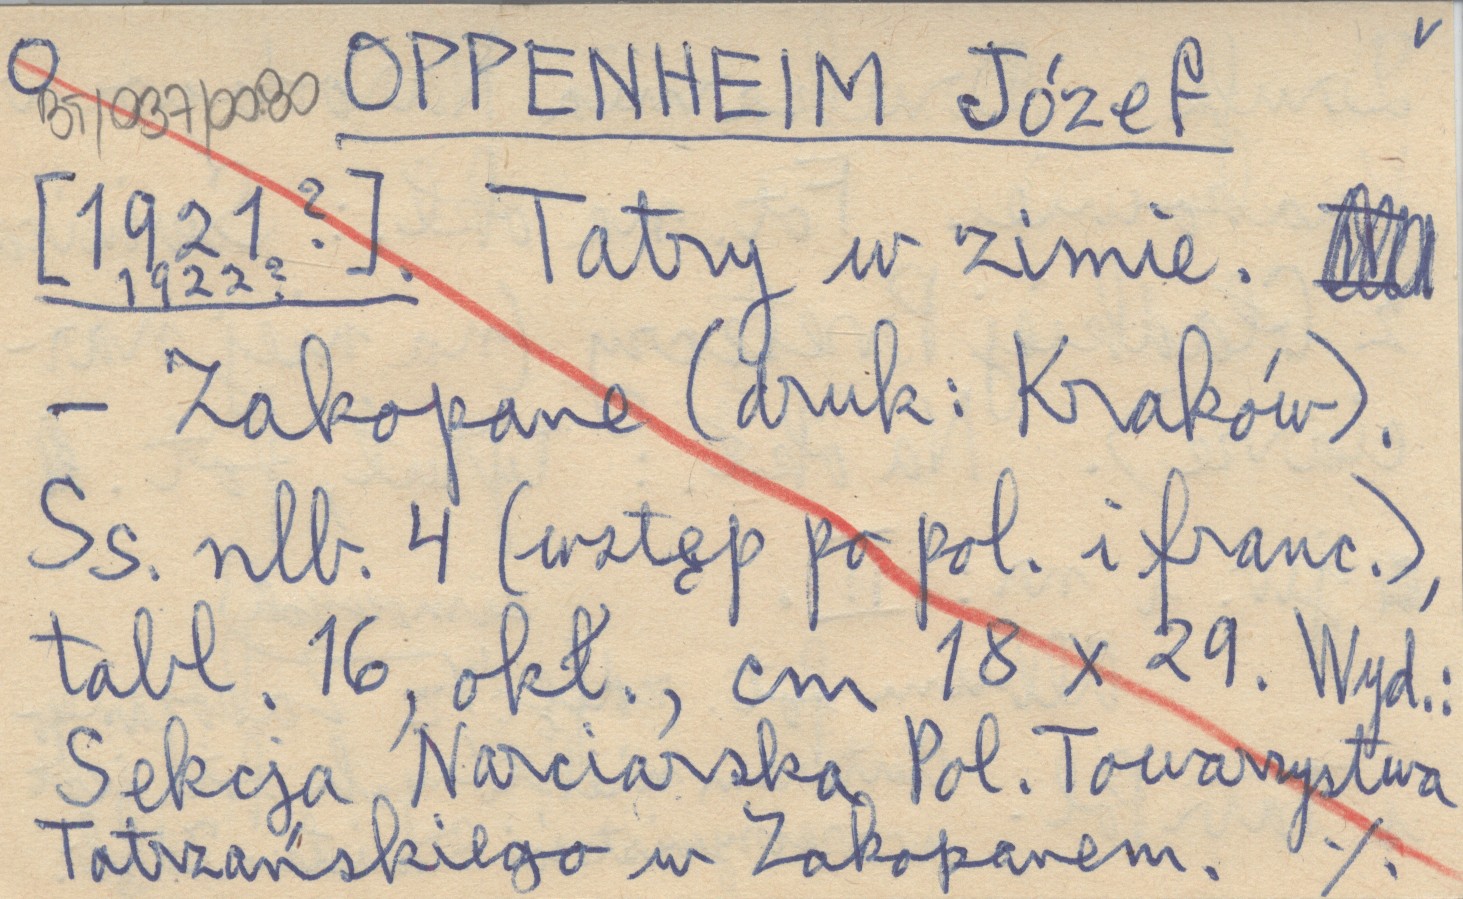 OPPENHEIM Józef
BT/037/0080
[1921?]. Tatry w zimie.
1922?
— Zakopane (druk: Kraków).
Ss. nlb. 4 (wstęp po pol. i franc.),
tabl. 16, okł., cm 18 x 29. Wyd.:
Sekcja Narciarska Pol. Towarzystwa
Tatrzańskiego w Zakopanem. ./.